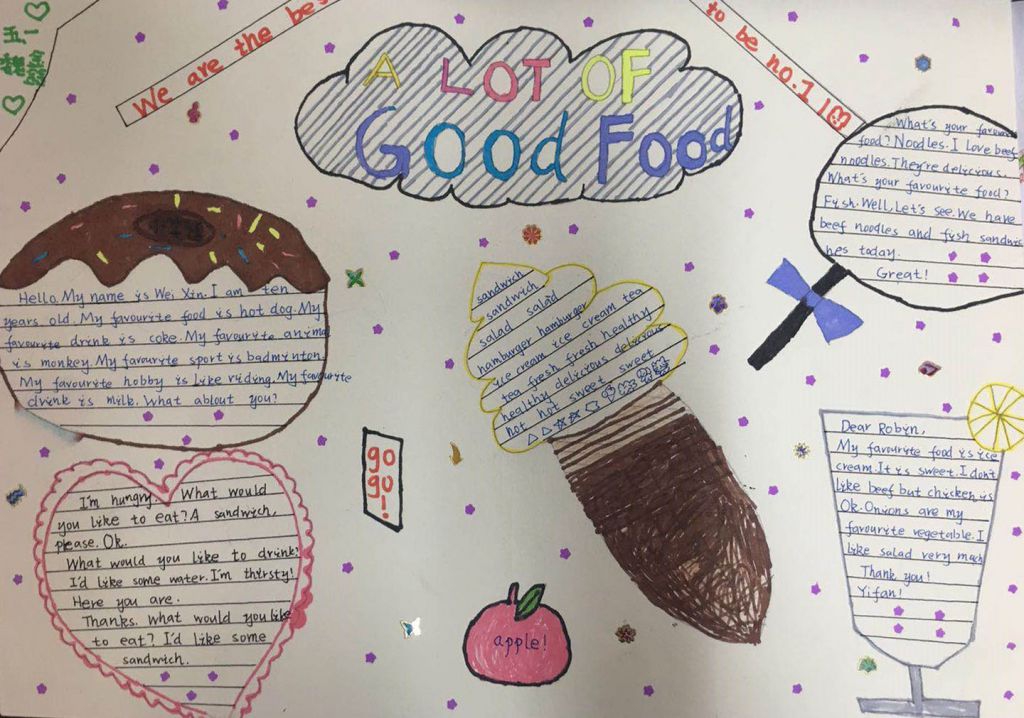 We are the bes
to be no.1!
A LOT OF
Good Food
What's your favou
food? Noodles. I love beef
noodles. They're delicious.
What's your favourite food?
Fish. Well, Let's see. We have
beef noodles and fish sandwic
hes today.
Great!
Hello. My name is Wei Xin. I am ten
years old. My favourite food is hot dog. My
favourite drink is coke. My favourite anima
is monkey. My favourite sport is badminton.
My favourite hobby is like riding. My favourite
drink is milk. What about you?
sandwich
sandwich
salad salad
hamburger hamburger
ice cream ice cream tea
tea fresh fresh healthy
healthy delicious delicious
hot hot sweet sweet
go
go!
Dear Robin,
My favourite food is ice
cream. It is sweet. I don't
like beef but chicken is
Ok. Onions are my
favourite vegetable. I
like salad very mach
Thank you!
Yifan!
I'm hungry. What would
you like to eat? A sandwich,
please. Ok.
What would you like to drink?
I'd like some water. I'm thirsty!
Here you are.
Thanks. What would you like
to eat? I'd like some
sandwich.
apple!